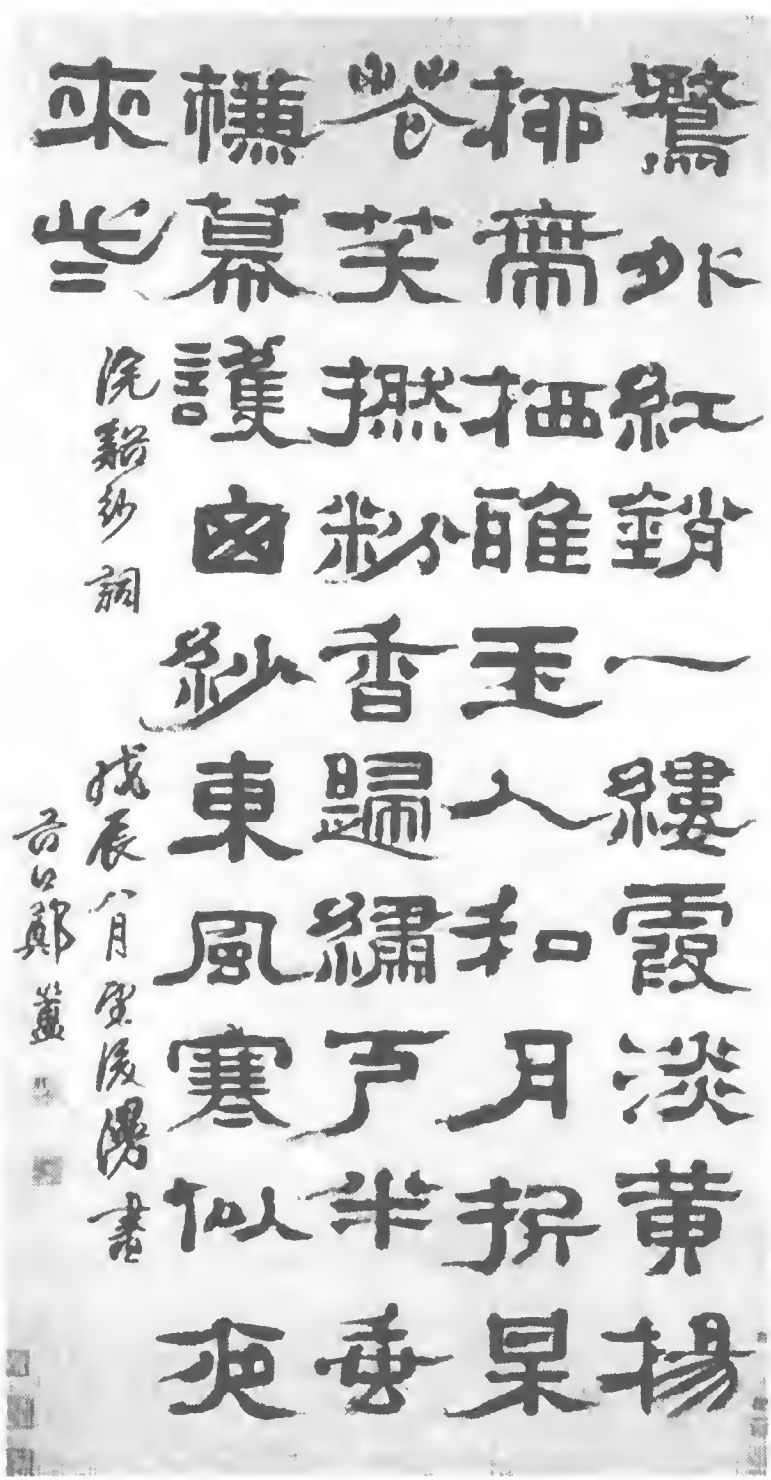 鶩外紅銷一縷霞淡黄楊
柳帶栖雅玉人和月折呆
花笑撚粉香歸繡戶半垂
槏幕護窗紗東風寒似夜
來些
浣谿紗詞 戊辰八月望後漫書
谷口鄭簠